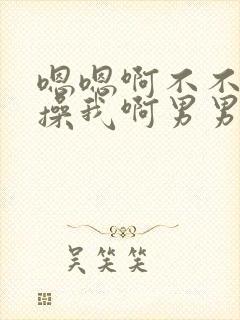 嗯嗯啊不不
操我啊男男
吴笑笑